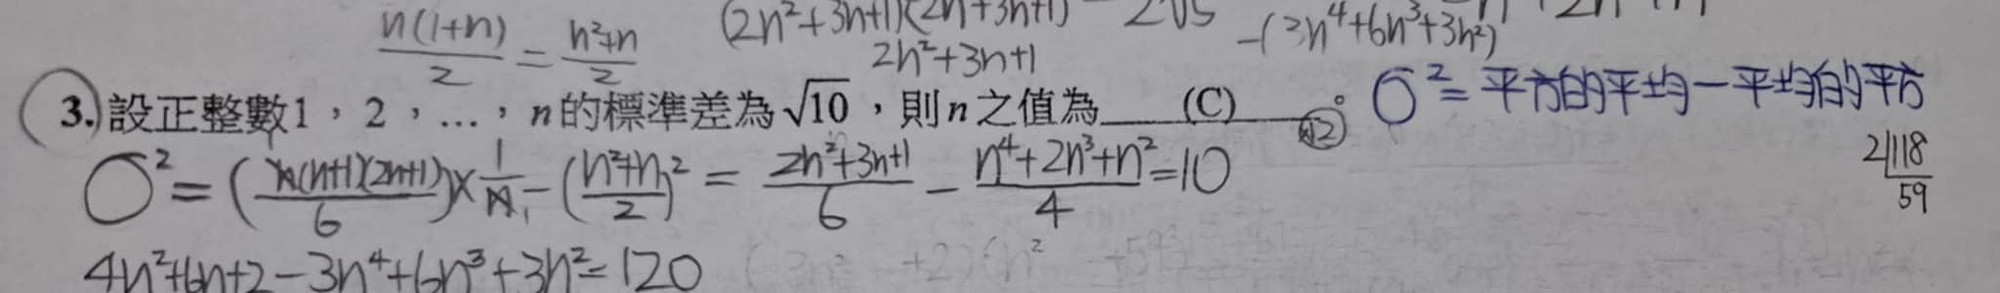 n(1+n)/2 = n²+n/2
(2n²+3n+1)(2n+3n+1)
2n²+3n+1
-(3n⁴+6n³+3n²)
3. 設正整數1，2，…，n的標準差為√10，則n之值為 (C) 。
σ²=平方的平均－平均的平方
σ² = (n(n+1)(2n+1)/6)×1/n - (n²+n/2)² = 2n²+3n+1/6 - n⁴+2n³+n²/4 = 10
2|118
59
4n²+6n+2-3n⁴+6n³+3n²=120